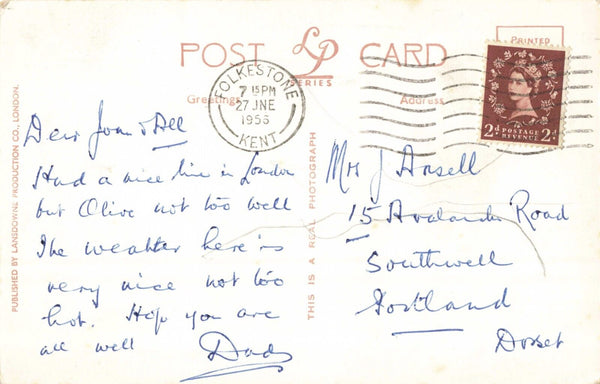 POST LP CARD
SERIES
PRINTED
Greetings
Address
FOLKESTONE
7 15PM
27 JNE
1956
KENT
2d POSTAGE REVENUE 2d
PUBLISHED BY LANSDOWNE PRODUCTION CO., LONDON.
THIS IS A REAL PHOTOGRAPH
Dear Joan & All
Had a nice time in London
but Olive not too well
The weather here is
very nice not too
hot. Hop you are
all well Dad
Mrs J Ansell
15 Road
Southwell
Portland
Dorset